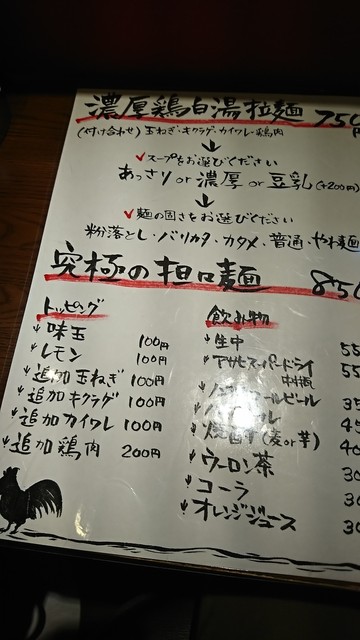 濃厚鶏白湯拉麺 750
(付け合わせ) 玉ねぎ・キクラゲ・カイワレ・鶏肉
↓
✓スープをお選びください
あっさり or 濃厚 or 豆乳(+200円)
↓
✓麺の固さをお選びください
粉落とし・バリカタ・カタメ・普通・やわ麺
究極の担々麺 850
トッピング
味玉 100円
レモン 100円
追加玉ねぎ 100円
追加キクラゲ 100円
追加カイワレ 100円
追加鶏肉 200円
飲み物
生中 55
アサヒスーパードライ 55
中瓶
ノンアルコールビール 35
45
焼酎(麦or芋) 40
ウーロン茶 30
コーラ 30
オレンジジュース 30